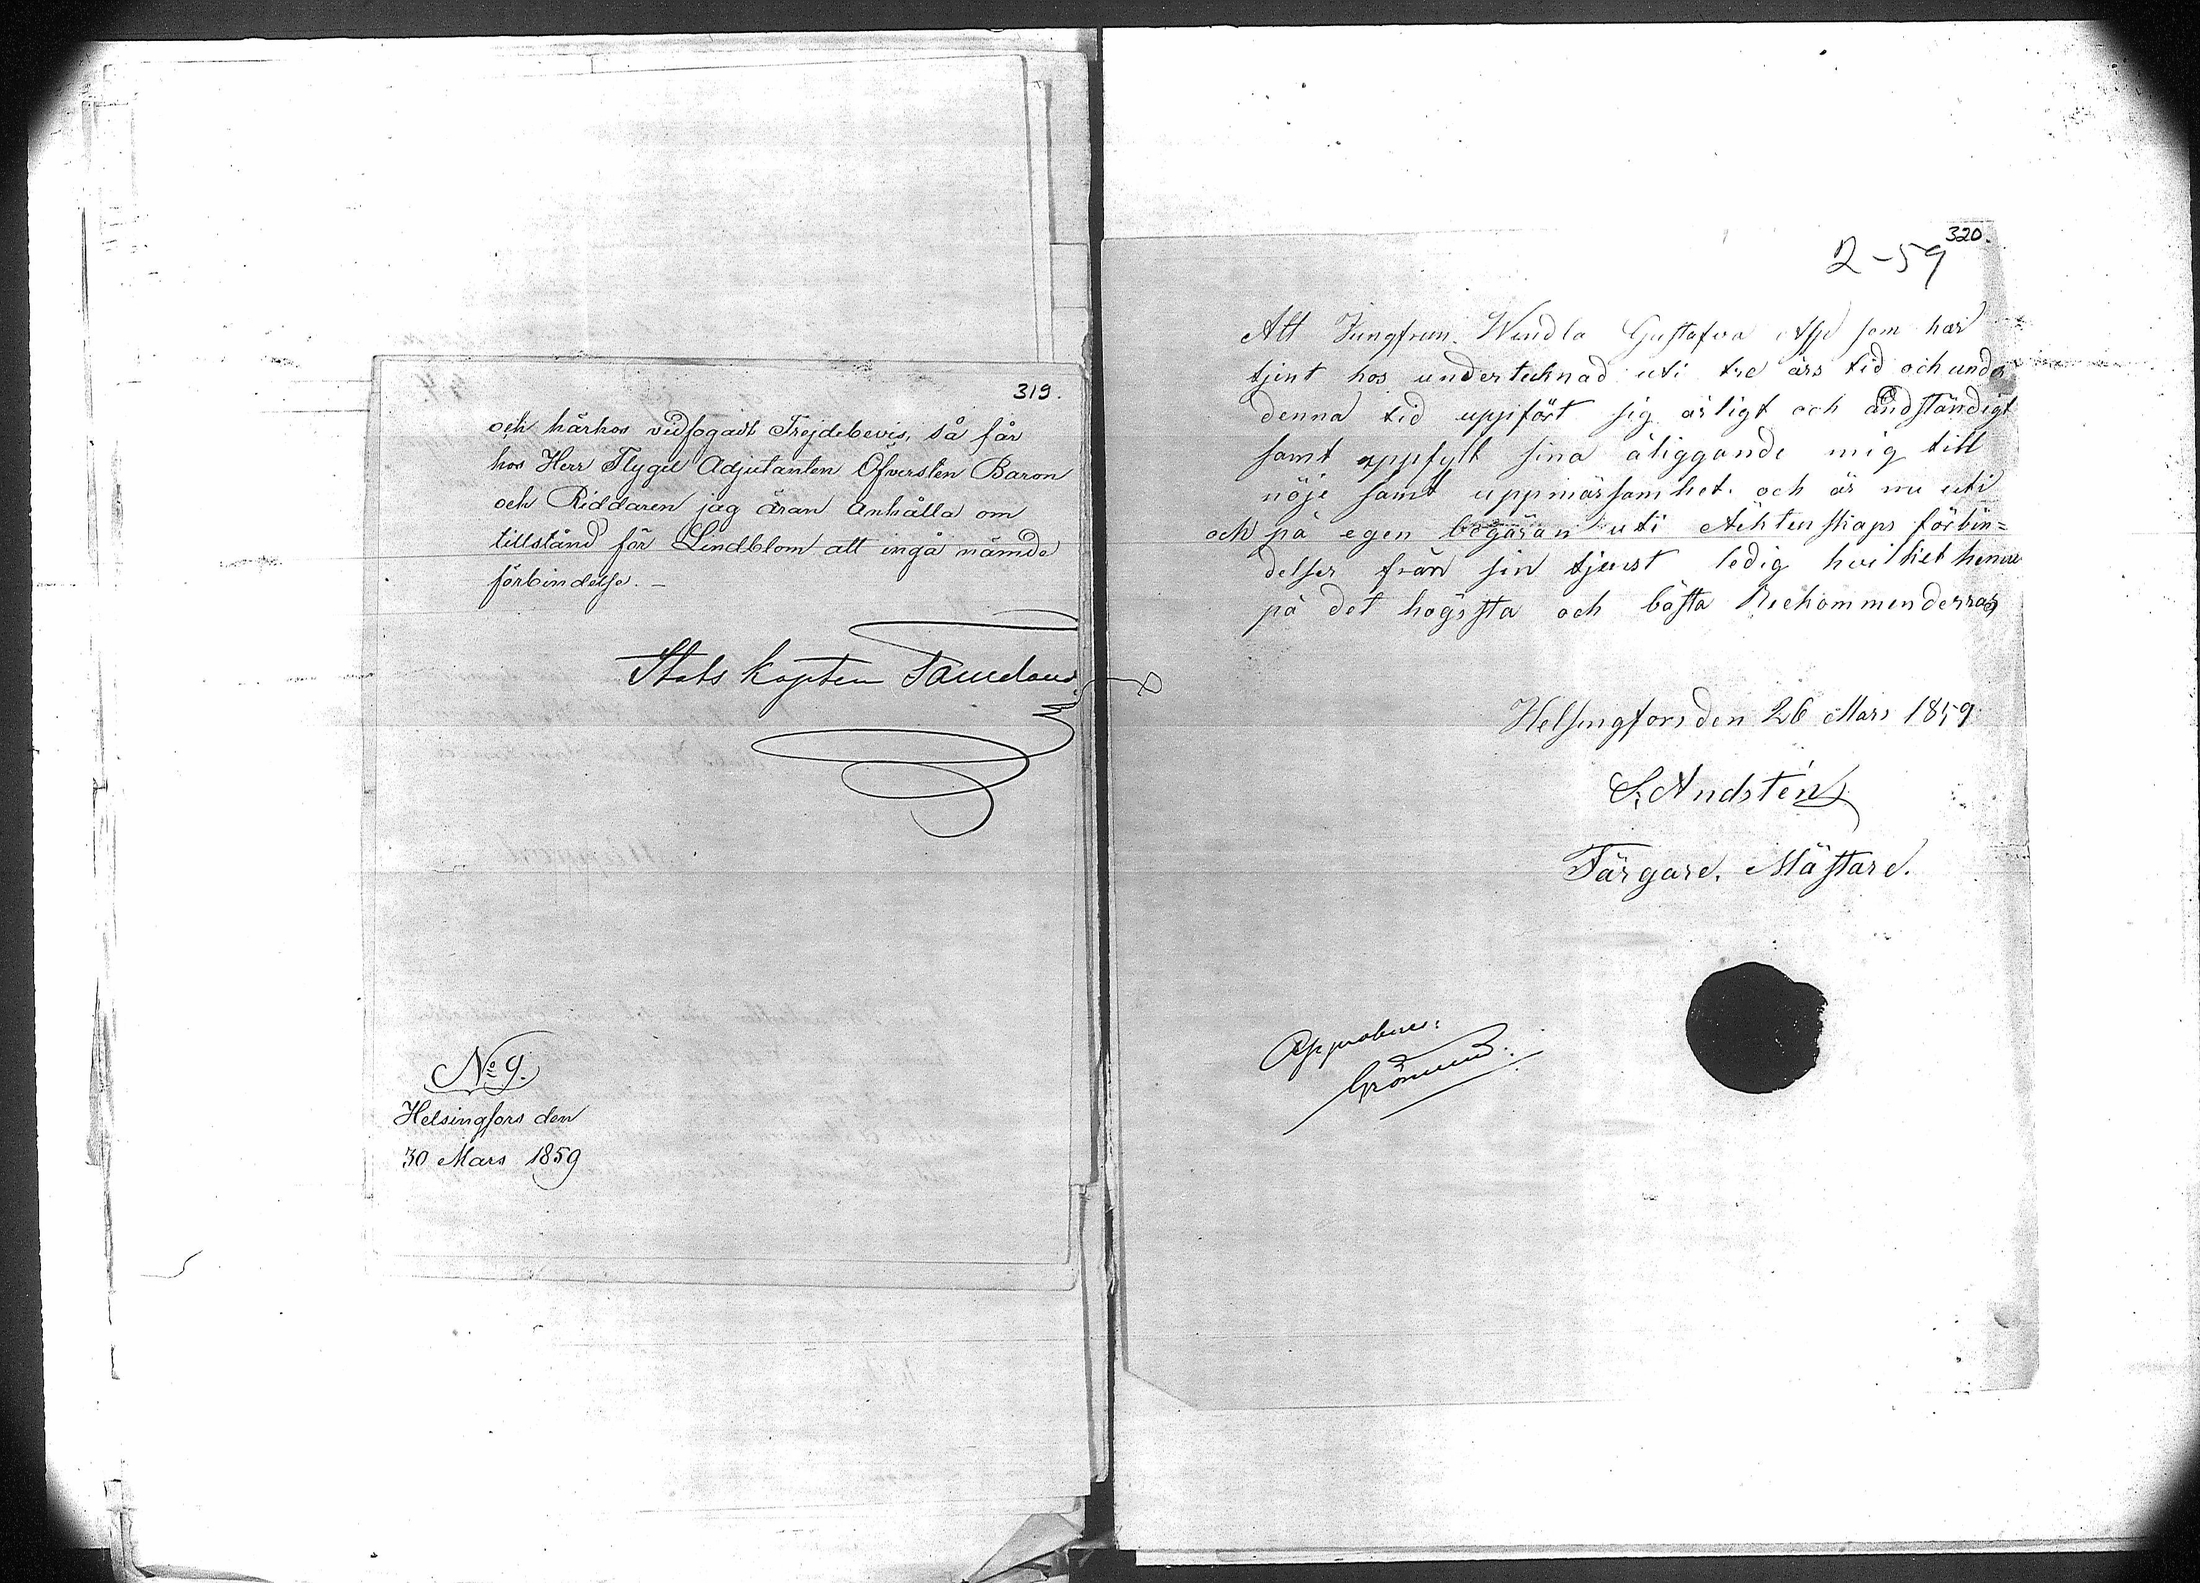 319.
och härhos vidfogadt Frejdebevis, så får
hos Herr Flygel Adjutanten Öfversten Baron
och Riddaren jag äran anhålla om
tillstånd för Lindblom att ingå nämde
förbindelse. —
Stabs kapten
No 9.
Helsingfors den
30 Mars 1859
320.
2-59
Att Jungfrun Wendla Gustafva Asp som har
tjent hos undertecknad uti tre års tid och under
denna tid uppfört sig ärligt och anständigt
samt uppfylt sina åliggande mig till
nöje samt uppmärsamhet. och är nu uti
och på egen begäran uti Äcktenskaps förbin=
delser från sin tjenst ledig hvilket henne
på det högssta och bästa Reckommenderras
Helsingfors den 26 Mars 1859
S. Andstén
Färgare. Mästare.
Approberas: